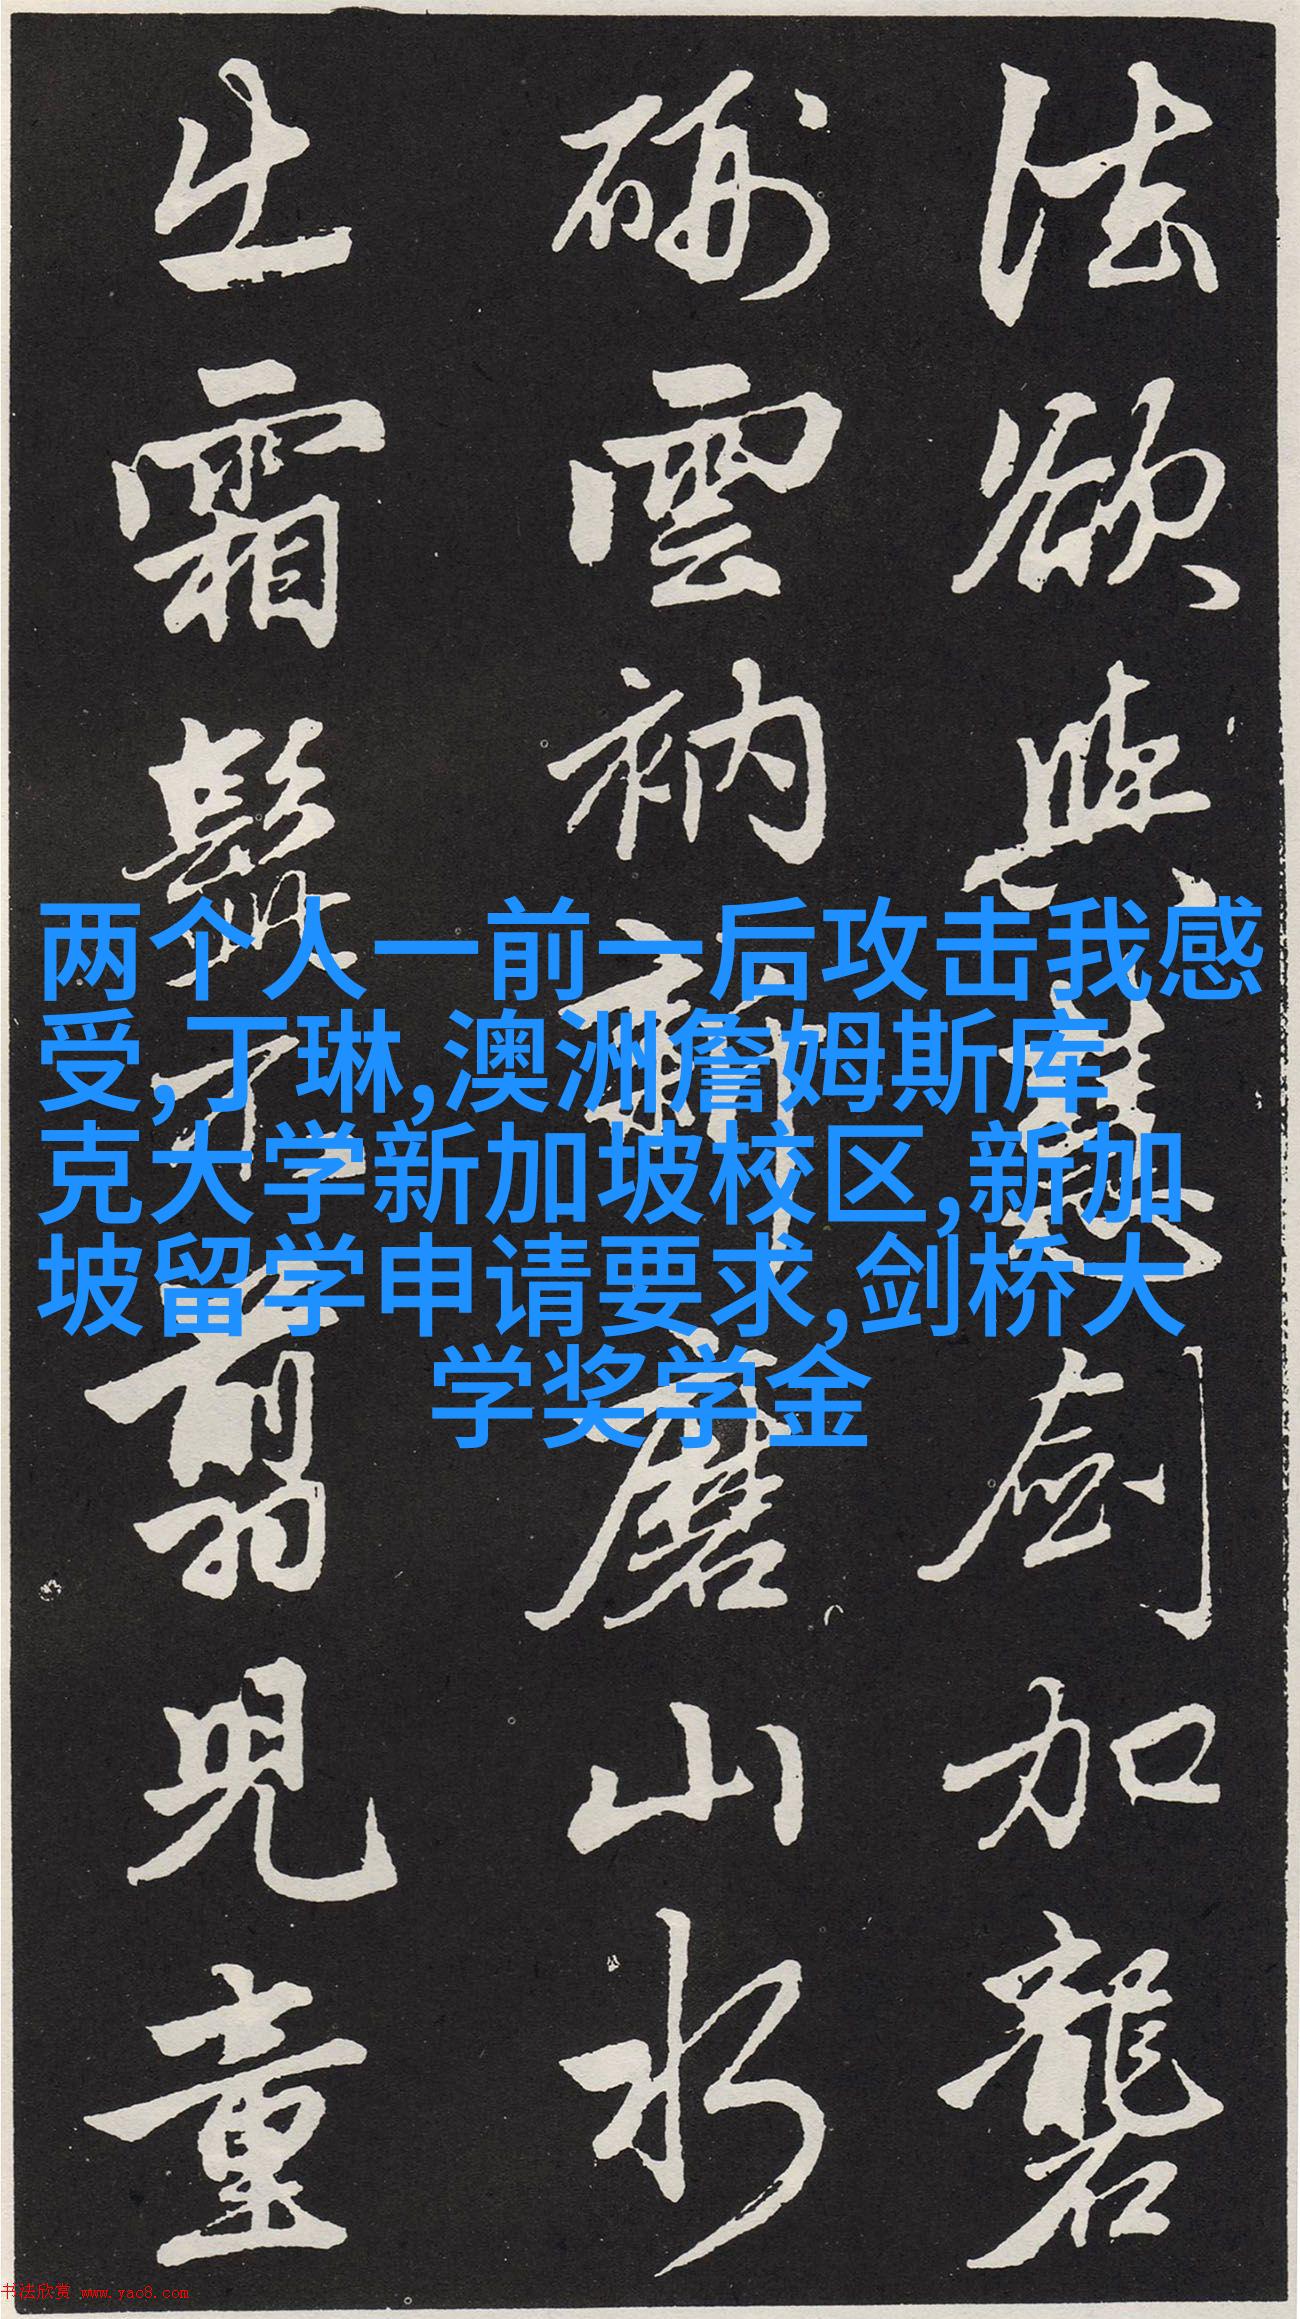 法欲與慧劍加礱
硎雲衲新磨山水
出霜髭不翦兒童
两个人一前一后攻击我感
受,丁琳,澳洲詹姆斯库
克大学新加坡校区,新加
坡留学申请要求,剑桥大
学奖学金
书法欣赏 www.yac8.com